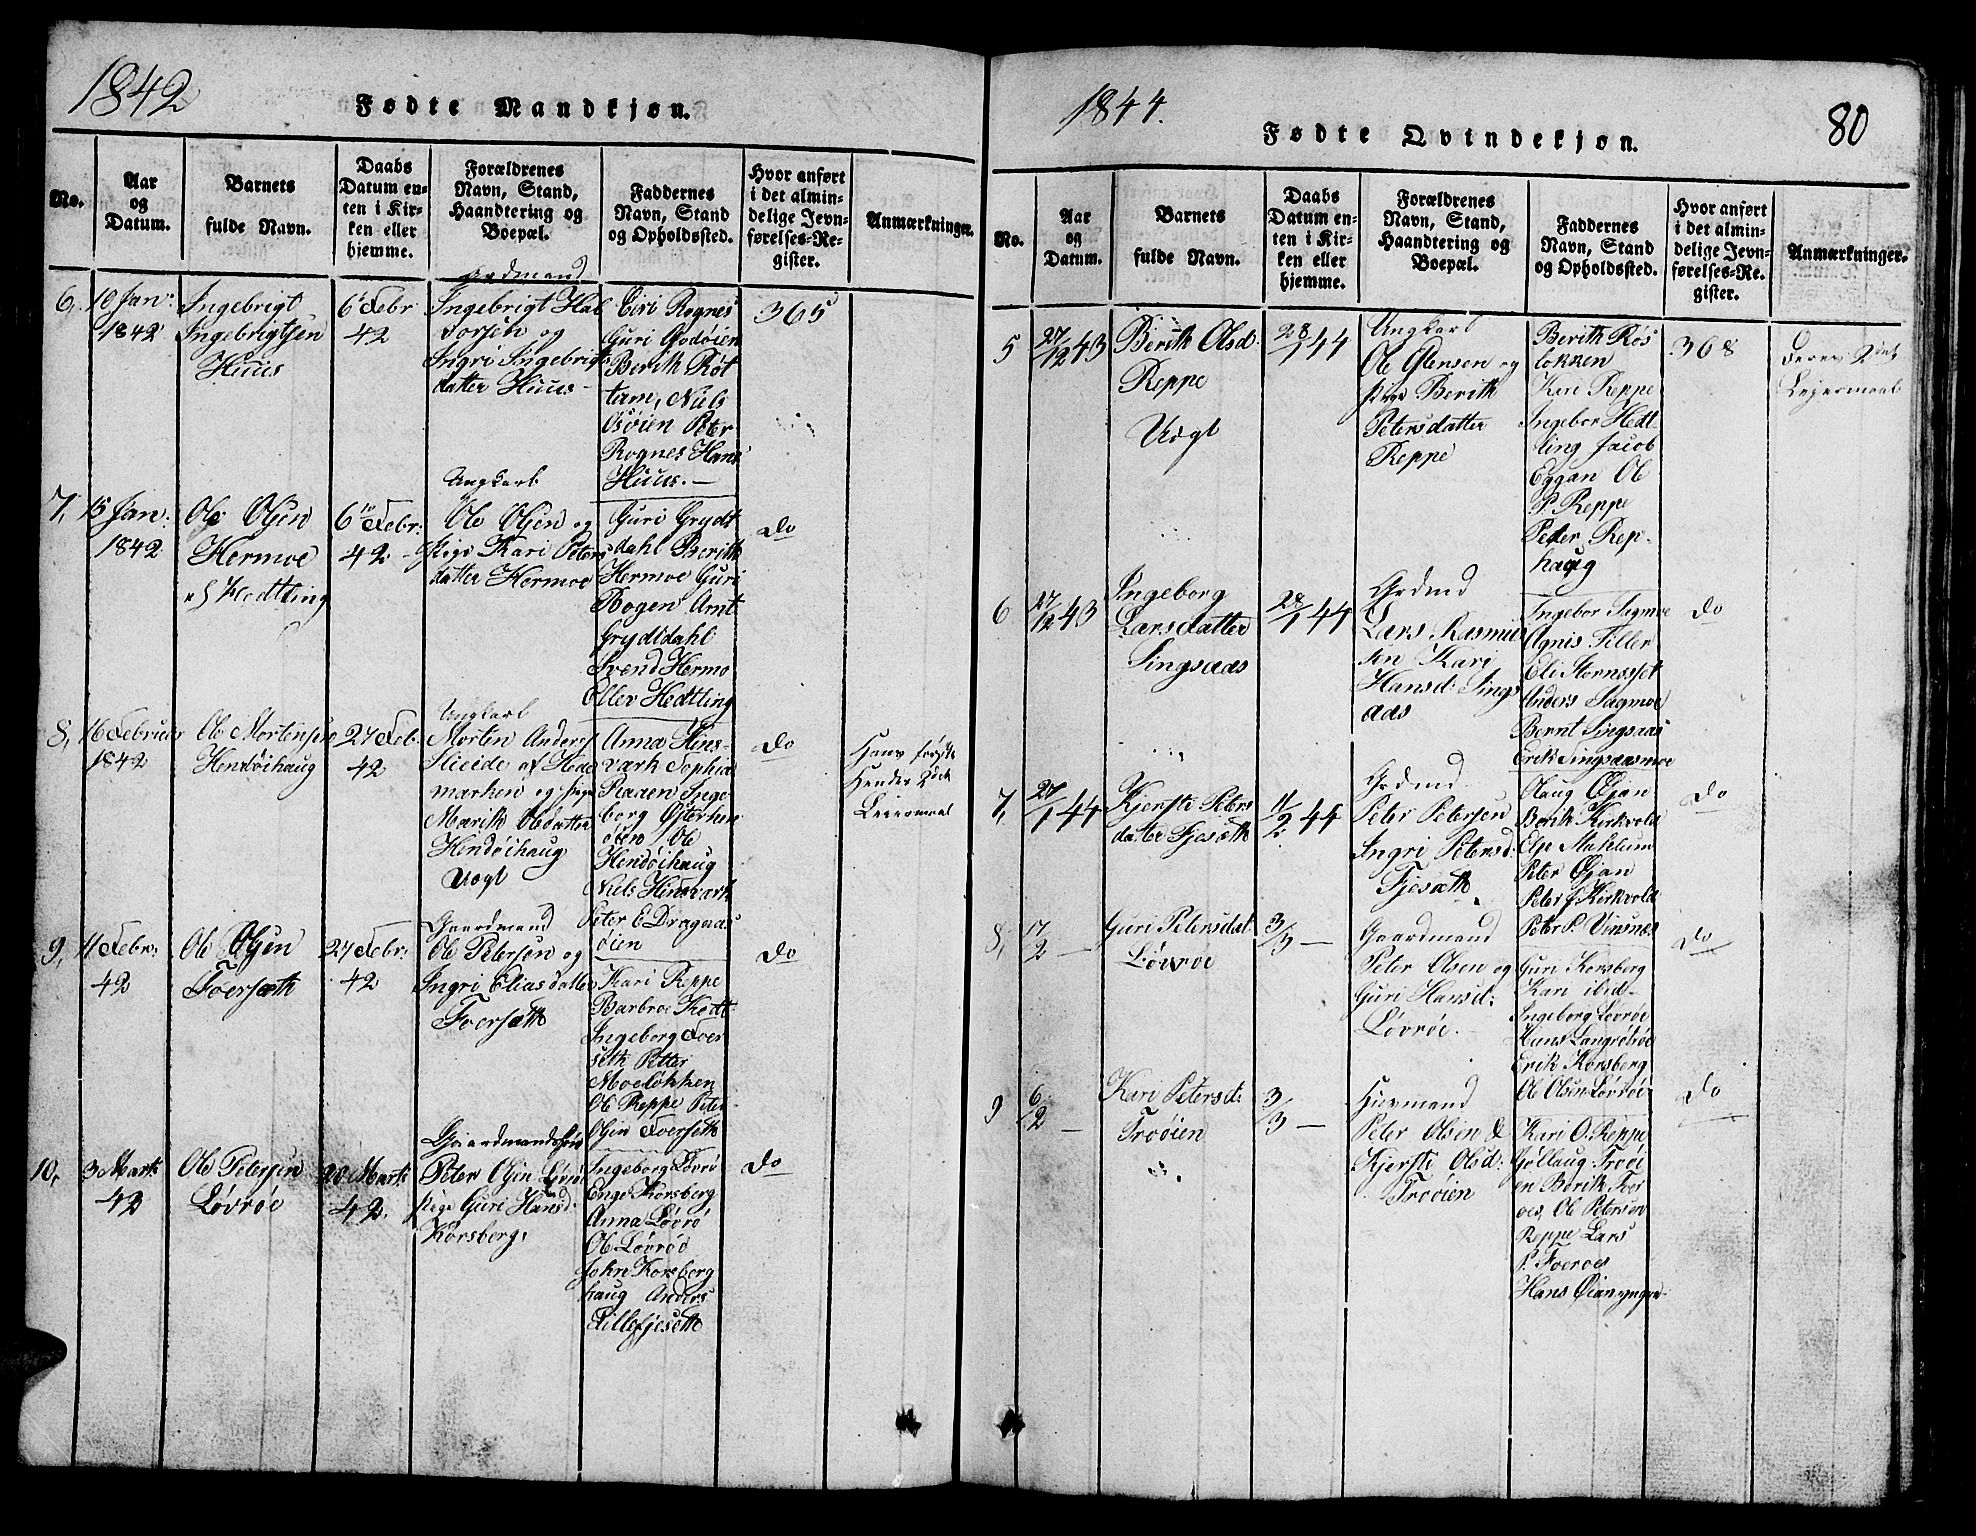 1842
Fødte Mandkjøn.
No.
Aar
og
Datum.
Barnets
fulde Navn.
Daabs
Datum en-
ten i Kir-
ken eller
hjemme.
Forældrenes
Navn, Stand,
Haandtering og
Boepæl.
Faddernes
Navn, Stand
og Opholdssted.
Hvor anført
i det almin-
delige Jevn-
førelses-Re-
gister.
Anmærkninger.
6,
10 Jan:
1842
Ingebrigt
Ingebrigtsen
Huus
6 Febr
42
Grdmand
Ingebrigt Hal
vorsen og
Ingri Ingebrigts
datter Huus
Siri Rognes
Guri
Berith Røt
tam, Niels
Peter
Rognes Hans
Huus.
365
7,
15 Jan:
1842
Ole Olsen
Hermoe
Hedtling
6te Febr:
42
Ungkarl
Ole Olsen og
Pige Kari Peters
datter Hermoe
Guri Grydt
dahl Berith
Hermoe Guri
Bogen Arnt
Grydtdahl
Svend Hermo
Ellev Hedtling
do
8,
16 Februar
1842
Ole Mortensen
Hendøihaug
27 Feb.
42
Ungkarl
Morten Anders
af Hede
marken og Pige
Marith Olsdatter
Hendøihaug
Uægt
Anna Hins-
vark Sophia
Raaen Inge
borg Østerhen
døen, Ole
Hendøihaug
Niels Hinsvark
Peter E Dragaas
øien
do
Hans første
Hendes 2det
Leiermaal
9,
11 Febr:
42
Ole Olsen
Foerseth
27 Febr:
42
Gaardmand
Ole Petersen og
Ingri Eliasdatter
Foerseth
Kari Reppe
Barbroe
Ingeborg Foer
seth Petter
Moeløkken
Ole Reppe Peter
Olsen Foerseth
do
10,
3 Marts
42
Ole Petersen
Løvrøe
20 Marts
42.
Gaardmandssøn
Peter Olsen Løvrø
Pige Guri Hansd:
Korsberg,
Ingeborg Løvrø
Korsberg
Anna Løvrø
Ole Løvrød
John Korsberg
haug Anders
Lillefjeseth
do
1844.
Fødte Qvindekjøn.
80
No.
Aar
og
Datum.
Barnets
fulde Navn.
Daabs
Datum en-
ten i Kir-
ken eller
hjemme.
Forældrenes
Navn, Stand,
Haandtering og
Boepæl.
Faddernes
Navn, Stand
og Opholdssted.
Hvor anført
i det almin-
delige Jevn-
førelses-Re-
gister.
Anmærkninger.
5
27/12 43
Berith Olsd
Reppe
Uægt
28/1 44
Ungkarl
Ole Estensen og
Pige Berith
Petersdatter
Reppe
Berith Røs
løkken
Kari Reppe
Ingebor Hedt
ling Jacob
Eggan Ole
P. Reppe
Peter Rep-
haug
368
Deres 2det
Leiermaal
6
27/12 43
Ingeborg
Larsdatter
Singsaas
28/1 44
Grdmd
Lars Rasmus
sen Kari
Hansd: Sings
aas
Ingebor Sagmoe
Agnis Tiller
Eli Storrøset
Anders Sagmoe
Bernt Singsaas
Erik Singsaasmoe
do
7,
27/1 44
Kjersti Peters
datter Fjesæth
11/2 44
Grdmd
Peter Petersen
Ingri Petersd:
Fjesæth
Olaug Øjan
Berith Kirkvold
Else Stahlum
Peter Øjan
Peter J. Kirkvold
Peter P. Vinsnæs
do
8,
17/2 —
Guri Petersdat
Løvrøe
3/3 —
Gaardmand
Peter Olsen og
Guri Hansd:
Løvrøe.
Guri Korsberg
Kari ibid
Ingeborg Løvrøe
Hans
Erik Korsberg
Ole Olsen Løvrøe
do
9
6/2 —
Kari Petersd:
Troøien
3/3 —
Huusmand
Peter Olsen &
Kjersti Olsd:
Troøien
Kari O. Reppe
Gøllaug Troøi
en Berith Foer
oes, Ole Petersen
Reppe Lars
P. Foeroes
Hans
do